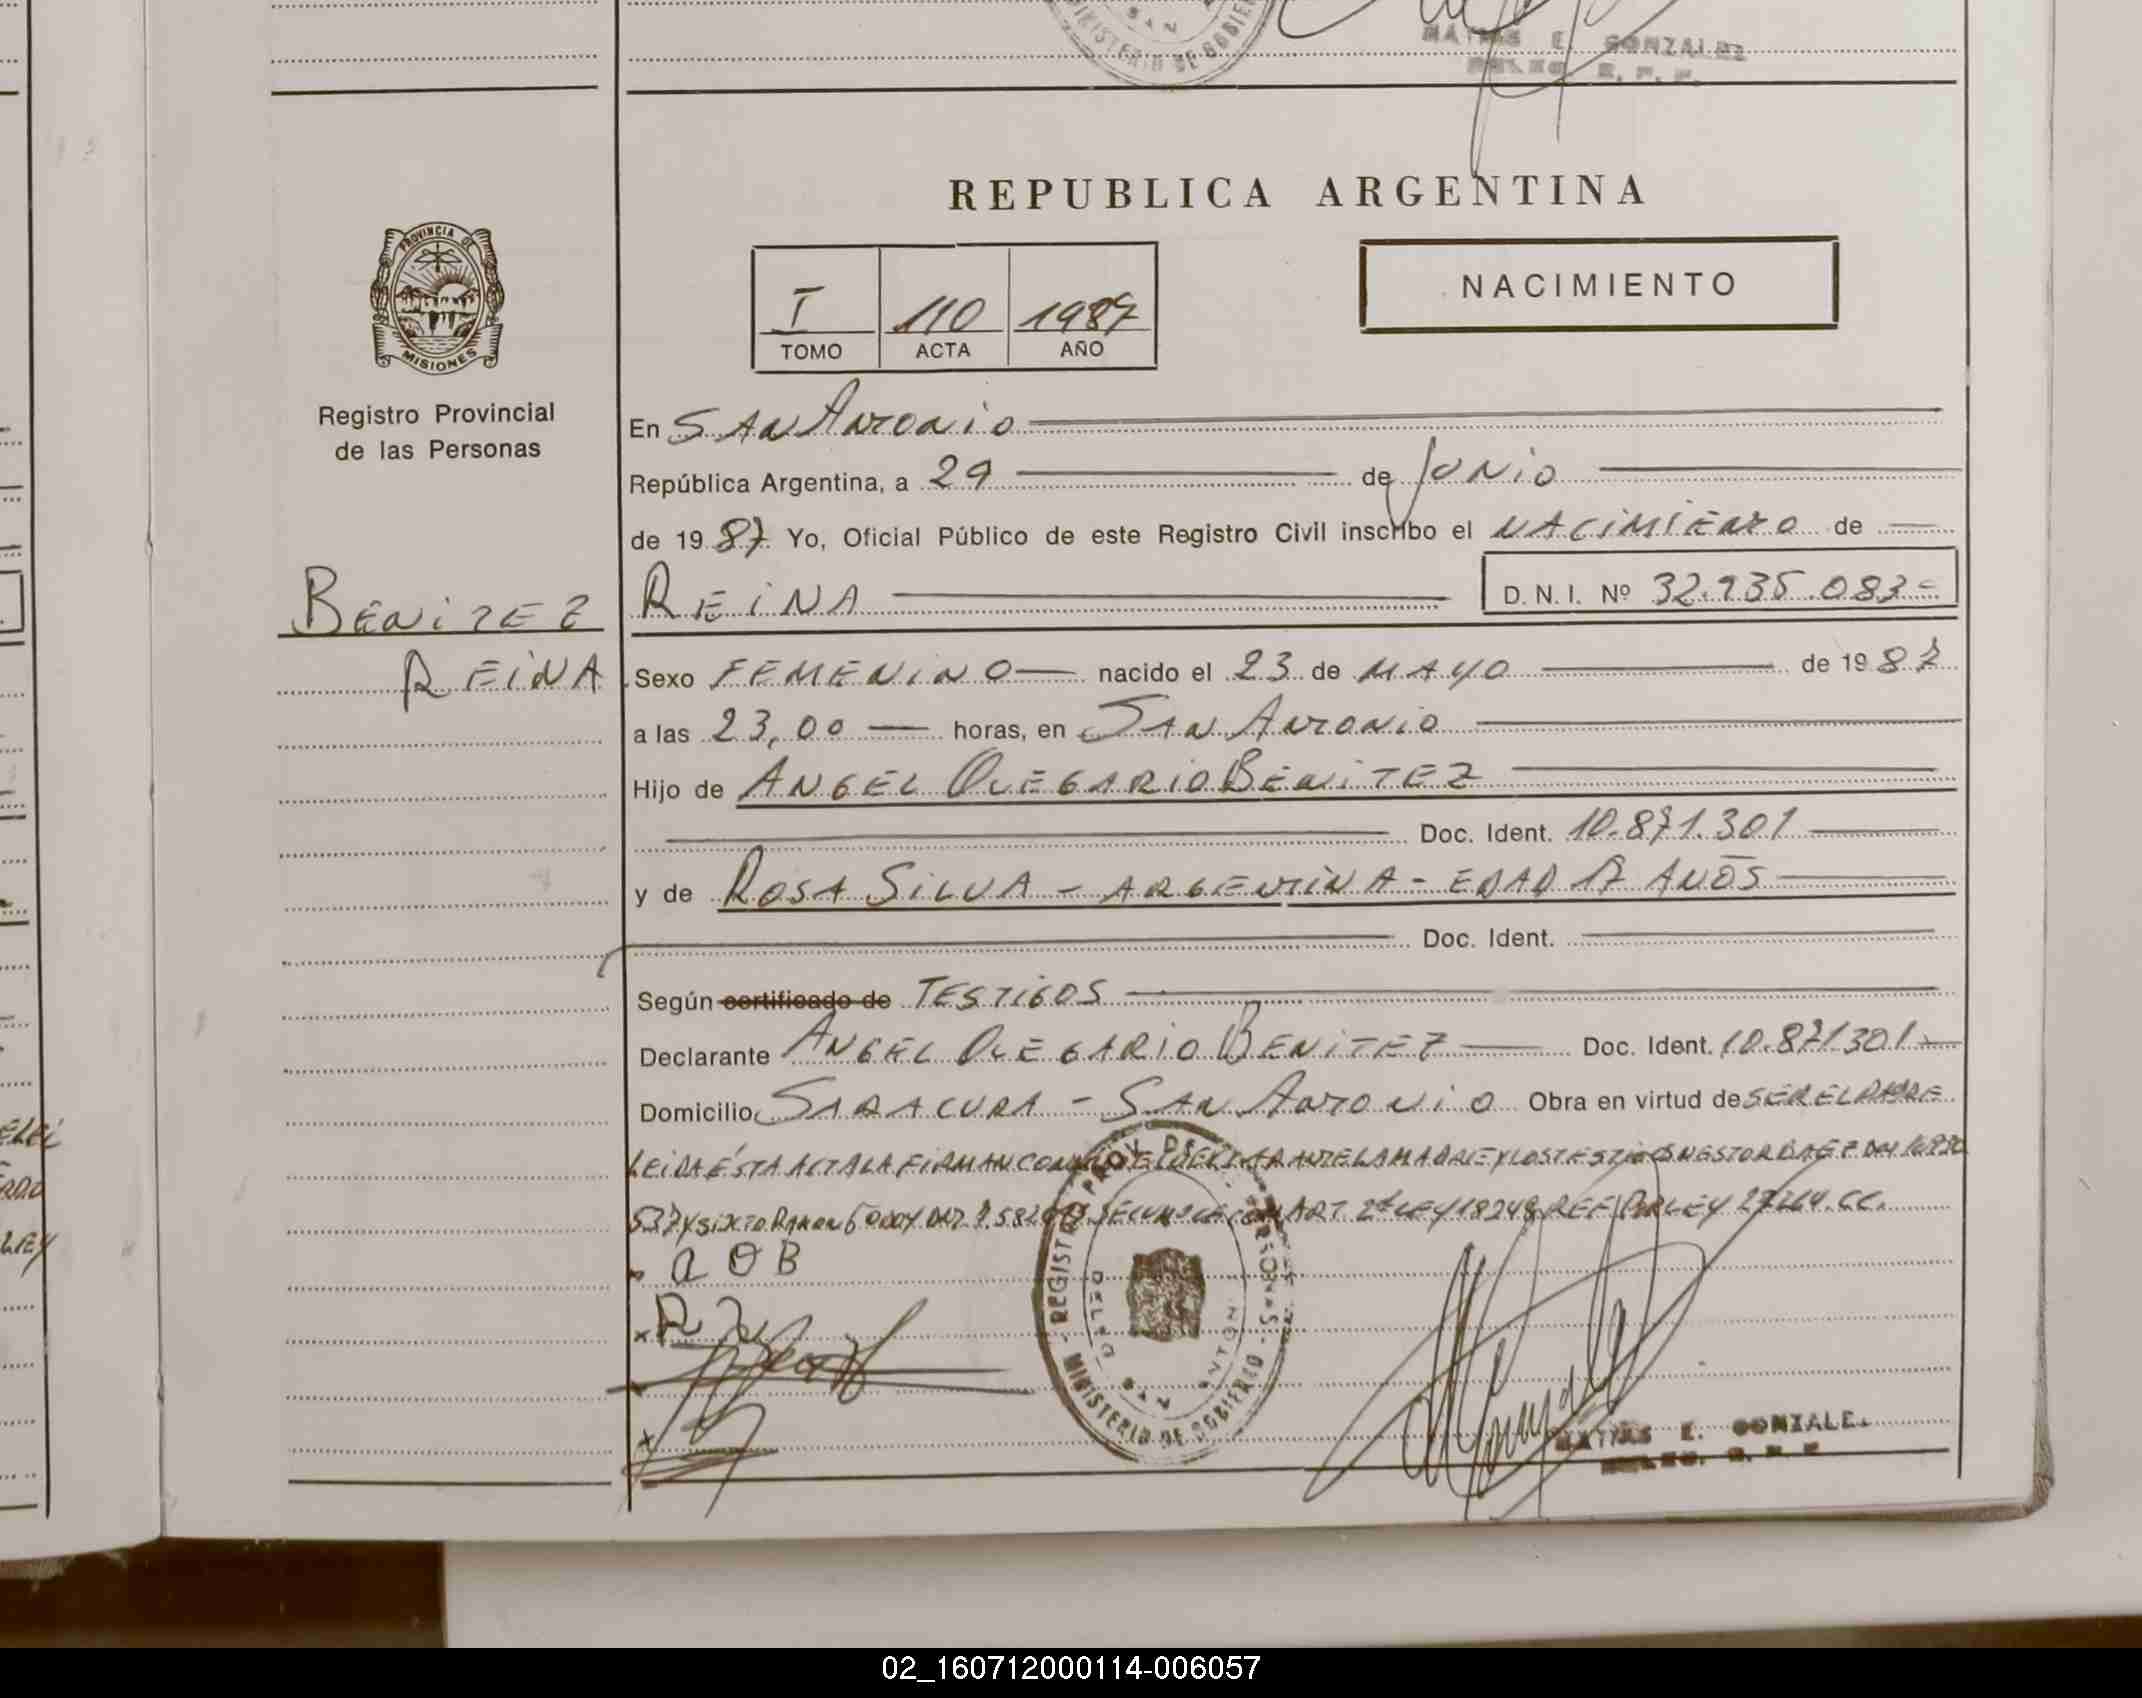 MATIAS E. GONZALEZ
MINISTERIO DE GOBIERNO
REPUBLICA ARGENTINA
PROVINCIA DE MISIONES
NACIMIENTO
I 110 1987
TOMO ACTA AÑO
Registro Provincial
de las Personas
En SAN ANTONIO
República Argentina, a 29 de JUNIO
de 1987 Yo, Oficial Público de este Registro Civil inscribo el NACIMIENTO de
BENITEZ REINA
REINA D. N. I. Nº 32.935.083=
Sexo FEMENINO nacido el 23 de MAYO de 1987
a las 23,00 horas, en SAN ANTONIO
Hijo de ANGEL OLEGARIO BENITEZ
Doc. Ident. 10.871.301
y de ROSA SILVA - ARGENTINA - EDAD 17 AÑOS
Doc. Ident.
Según certificado de TESTIGOS
Declarante ANGEL OLEGARIO BENITEZ Doc. Ident. 10.871301
Domicilio SARACURA - SAN ANTONIO Obra en virtud de SER EL PADRE
LEIDA ÉSTA ACTA LA FIRMAN CONMIGO EL DECLARANTE LA MADRE Y LOS TESTIGOS NESTOR BAEZ DNI
537 Y SIXTO RAMON GODOY DNI ART. 2º LEY 18248 REF POR LEY C.C.
A O B
MATIAS E. GONZALE.
REGISTRO PROV. DE LAS PERSONAS - MINISTERIO DE GOBIERNO
DELEG. SAN ANTONIO
02_160712000114-006057